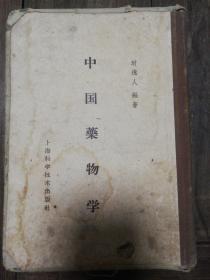 时逸人 编著
中国藥物学
上海科学技术出版社